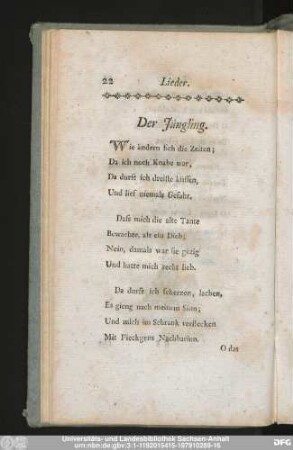 22 Lieder.
Der Jüngling.
Wie ändern sich die Zeiten;
Da ich noch Knabe war,
Da durft ich dreiste küssen,
Und lief niemals Gefahr,
Daß mich die alte Tante
Bewachte, als ein Dieb;
Nein, damals war sie gütig
Und hatte mich recht lieb.
Da durft ich scherzen, lachen,
Es gieng nach meinem Sinn;
Und mich im Schrank verstecken
Mit Fiekchen
O das
Universitäts- und Landesbibliothek Sachsen-Anhalt
urn:nbn:de:gbv:3:1-1192015415-187910289-16
DFG